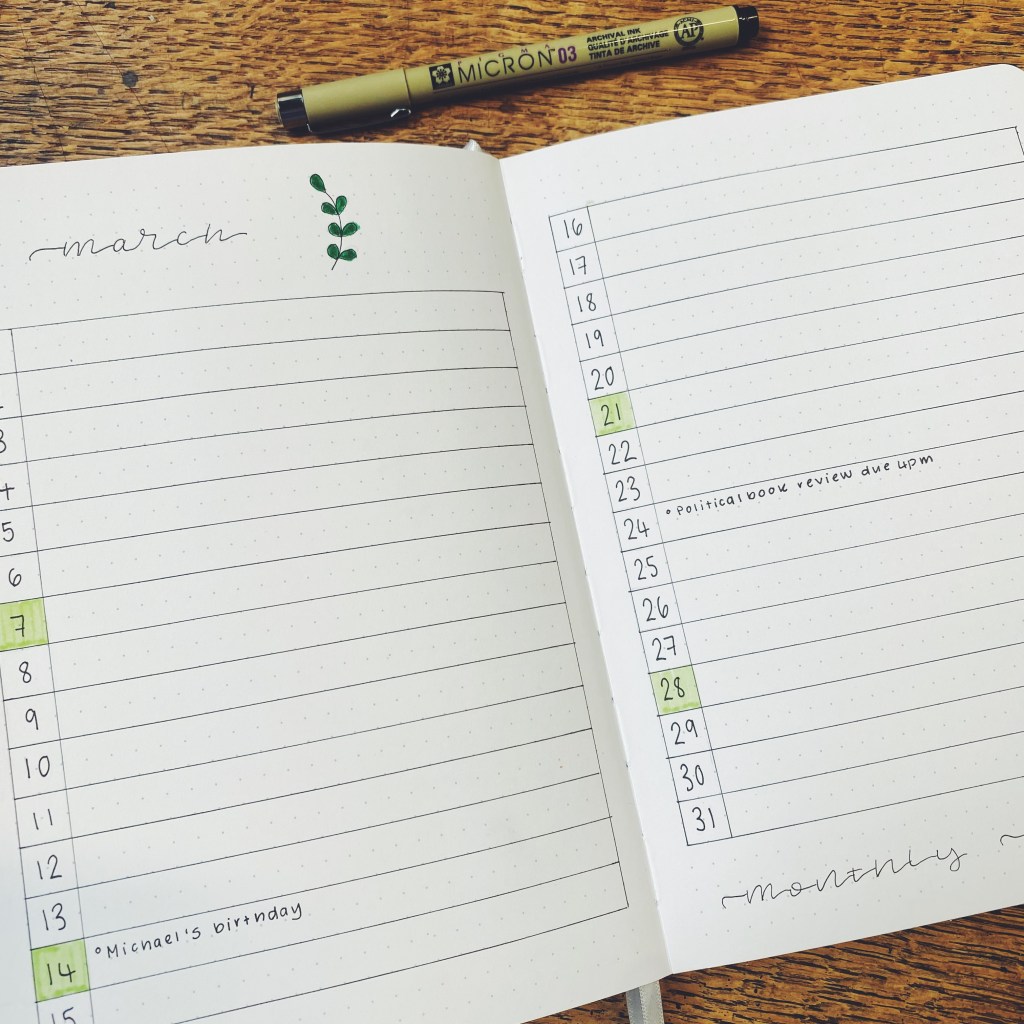 MICRON 03
ARCHIVAL INK
QUALITÉ D'ARCHIVAGE
TINTA DE ARCHIVE
AP
march
3
4
5
6
7
8
9
10
11
12
13
14 Michael's birthday
15
16
17
18
19
20
21
22
23
24 Political book review due 4pm
25
26
27
28
29
30
31
~monthly ~